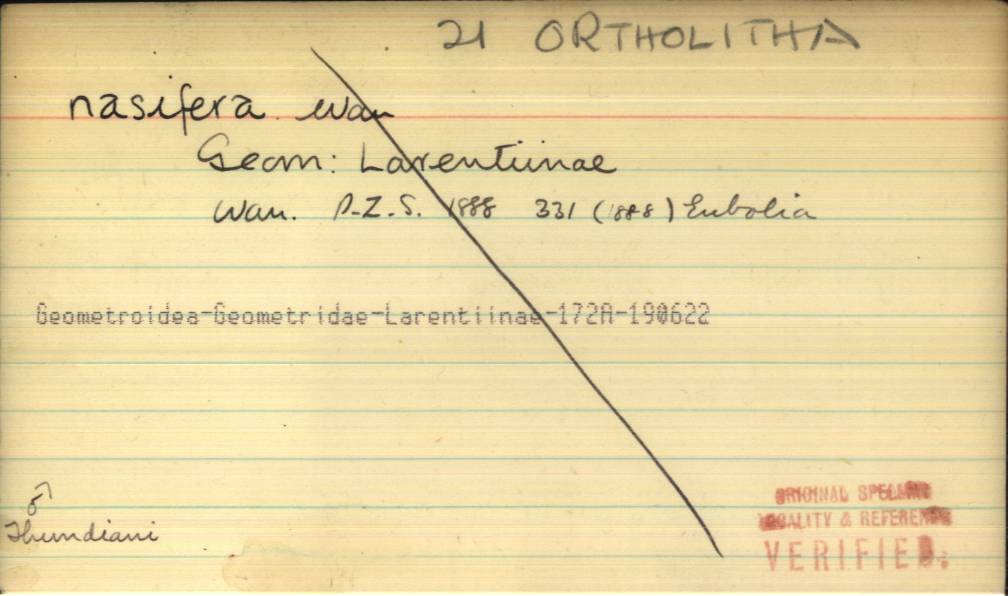 21 ORTHOLITHA
nasifera Wan
Geom: Larentiinae
Wan. P.Z.S. 1888 331 (1888) Eubolia
Geometroidea-Geometridae-Larentiinae-172A-190622
♂
Thundiani
ORIGINAL SPELLING
LOCALITY & REFERENCE
VERIFIED.